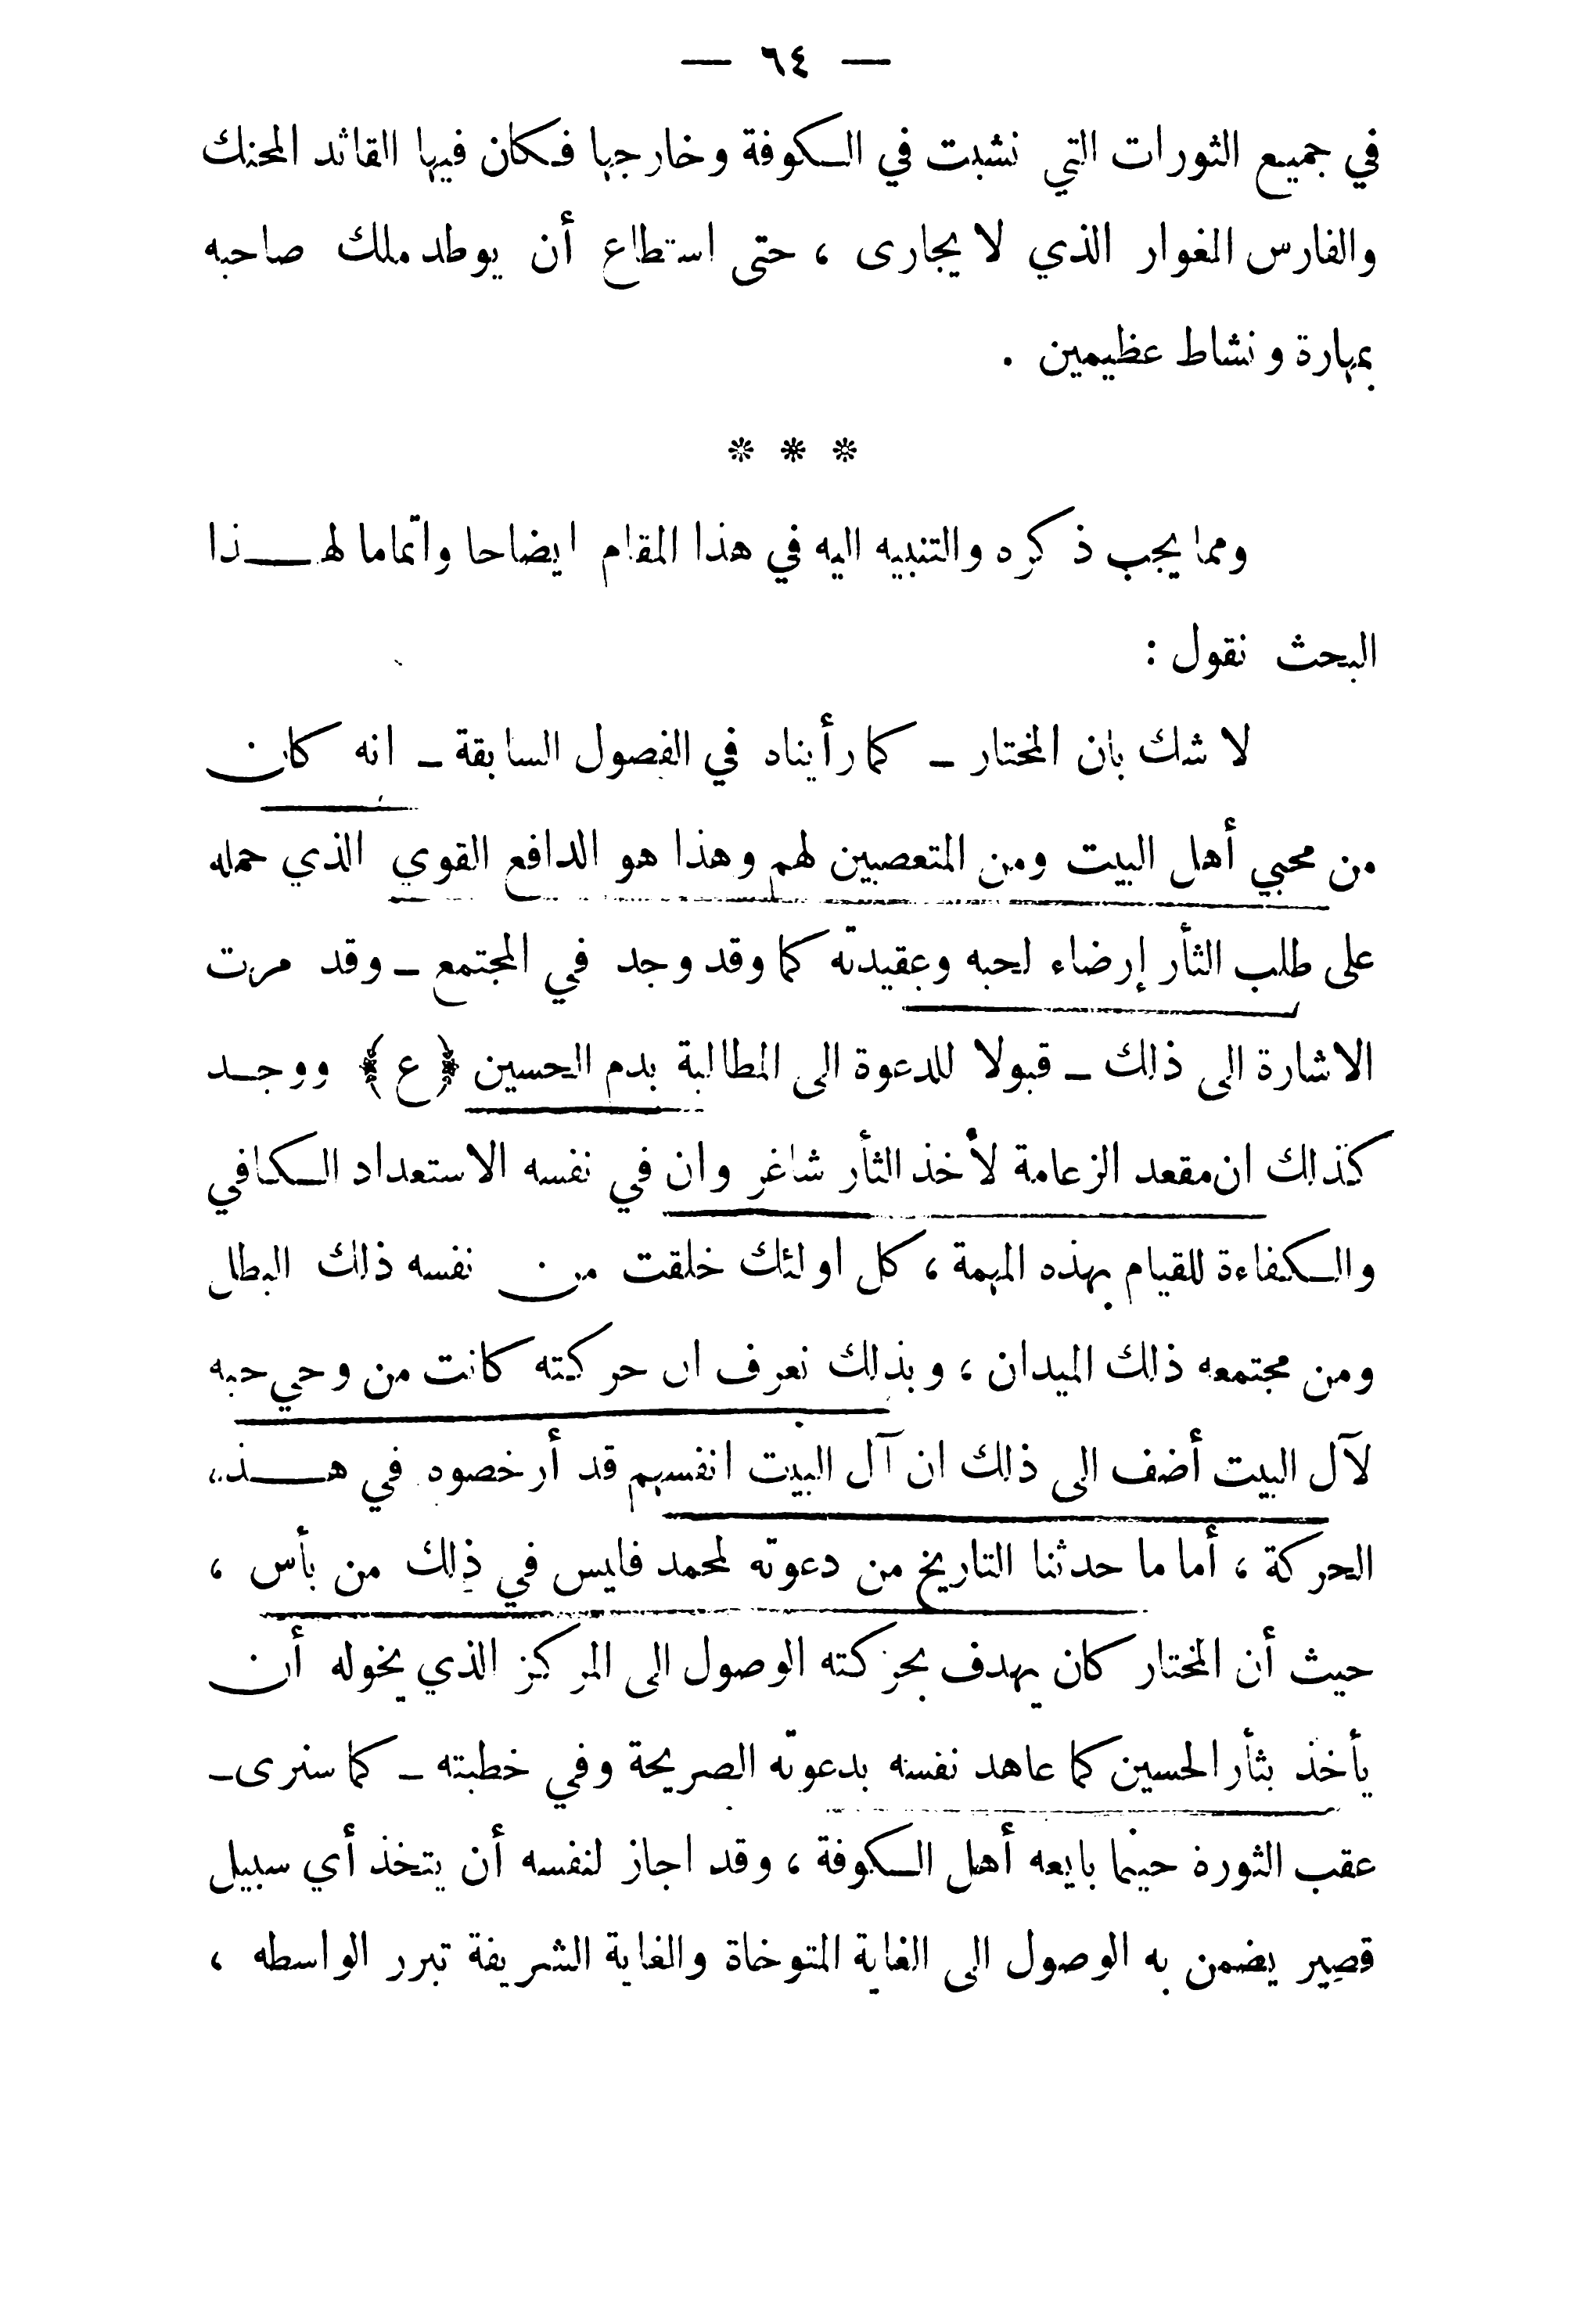 — ٦٤ —
في جميع الثورات التي نشبت في الكوفة وخارجها فكان فيها القائد المحنك
والفارس المغوار الذي لا يجارى ، حتى استطاع أن يوطد ملك صاحبه
بمهارة ونشاط عظيمين .
* * *
ومما يجب ذكره والتنبيه اليه في هذا المقام ايضاحا واتماما لهذا
البحث نقول :
لا شك بان المختار ـ كما رأيناه في الفصول السابقة ـ انه كان
من محبي أهل البيت ومن المتعصبين لهم وهذا هو الدافع القوي الذي حمله
على طلب الثأر إرضاء لحبه وعقيدته كما وقد وجد في المجتمع ـ وقد مرت
الاشارة الى ذلك ـ قبولا للدعوة الى المطالبة بدم الحسين ﴿ ع ﴾ ووجد
كذلك ان مقعد الزعامة لأخذ الثأر شاغر وان في نفسه الاستعداد الكافي
والكفاءة للقيام بهذه المهمة ، كل اولئك خلقت من نفسه ذلك البطل
ومن مجتمعه ذلك الميدان ، وبذلك نعرف ان حركته كانت من وحي حبه
لآل البيت أضف الى ذلك ان آل البيت انفسهم قد أرخصوه في هذه
الحركة ، أما ما حدثنا التاريخ من دعوته لمحمد فليس في ذلك من بأس ،
حيث أن المختار كان يهدف بحركته الوصول الى المركز الذي يخوله أن
يأخذ بثأر الحسين كما عاهد نفسه بدعوته الصريحة وفي خطبته ـ كما سنرى ـ
عقب الثورة حينما بايعه أهل الكوفة ، وقد اجاز لنفسه أن يتخذ أي سبيل
قصير يضمن به الوصول الى الغاية المتوخاة والغاية الشريفة تبرر الواسطه ،